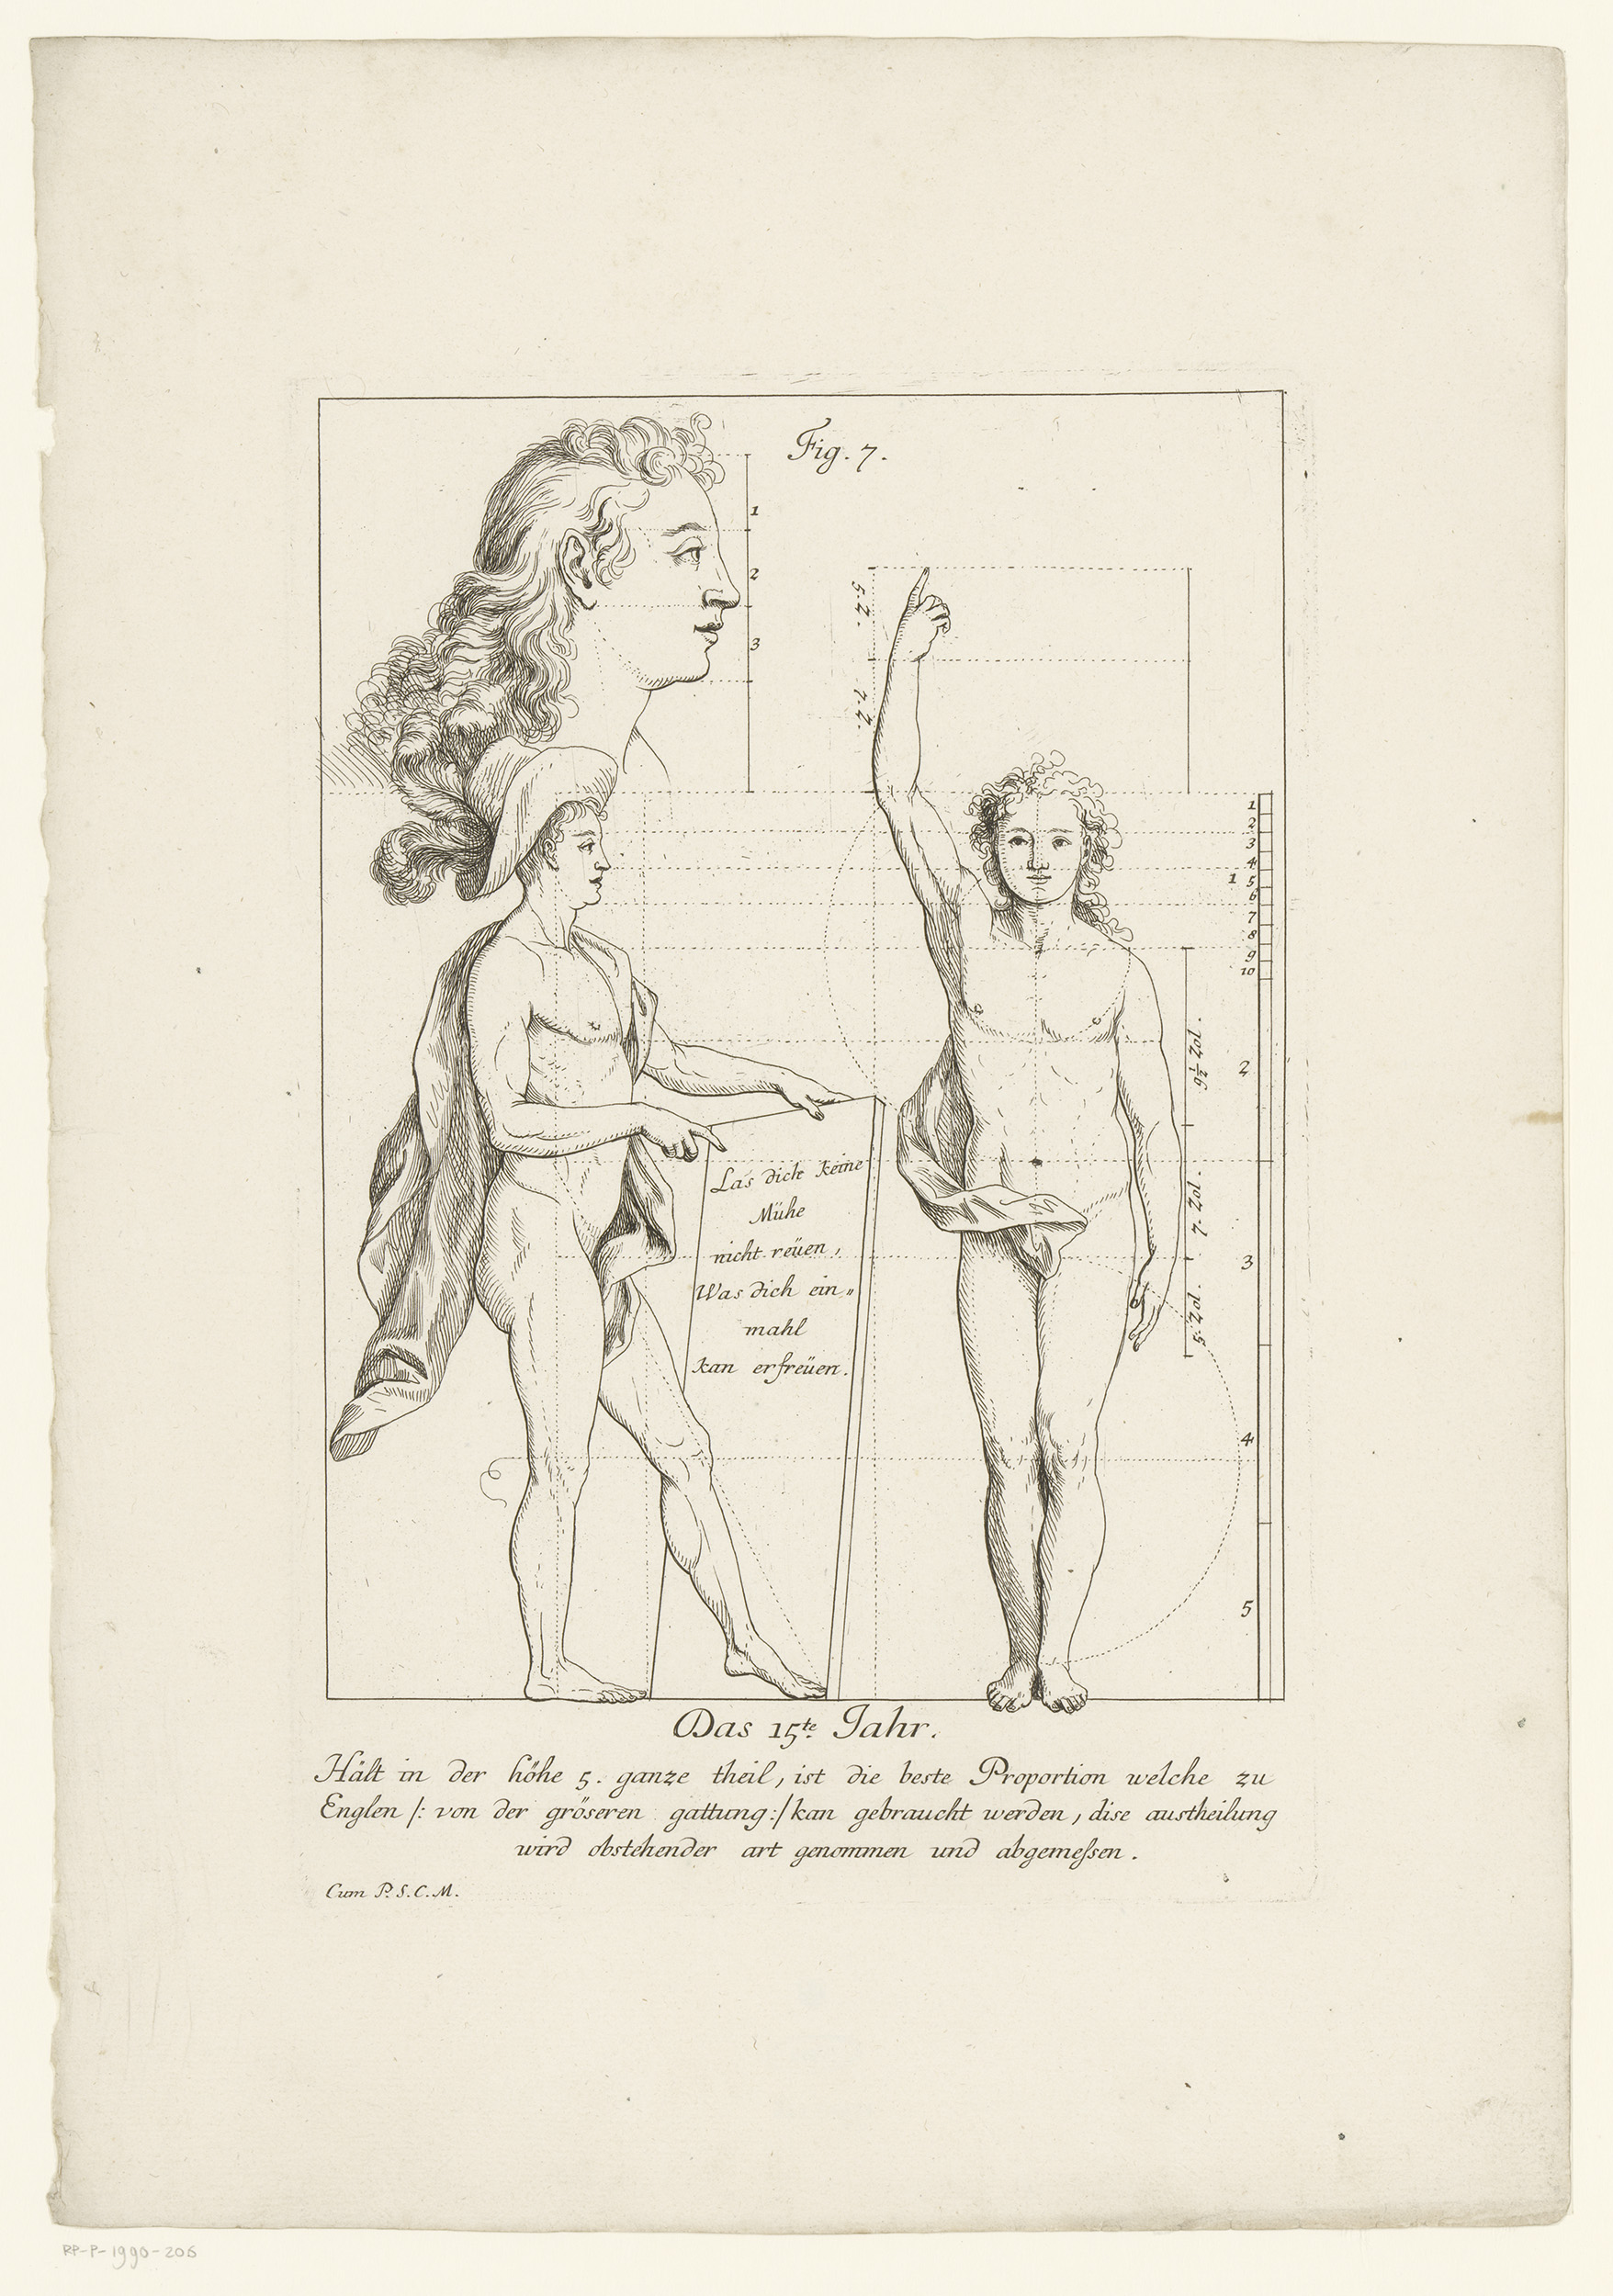 Fig. 7.
1
2
3
5. Z.
7. Z.
1
2
3
4
1 5
6
7
8
9
10
9½ Zol.
2
7. Zol.
3
5. Zol.
4
5
Las dich keine
Mühe
nicht reüen,
Was dich ein„
mahl
kan erfreüen.
Das 15te. Jahr.
Hält in der höhe 5. ganze theil, ist die beste Proportion welche zu
Englen /: von der gröseren gattung :/ kan gebraucht werden, dise austheilung
wird obstehender art genommen und abgemeſsen.
Cum P. S. C. M.
RP-P-1990-206